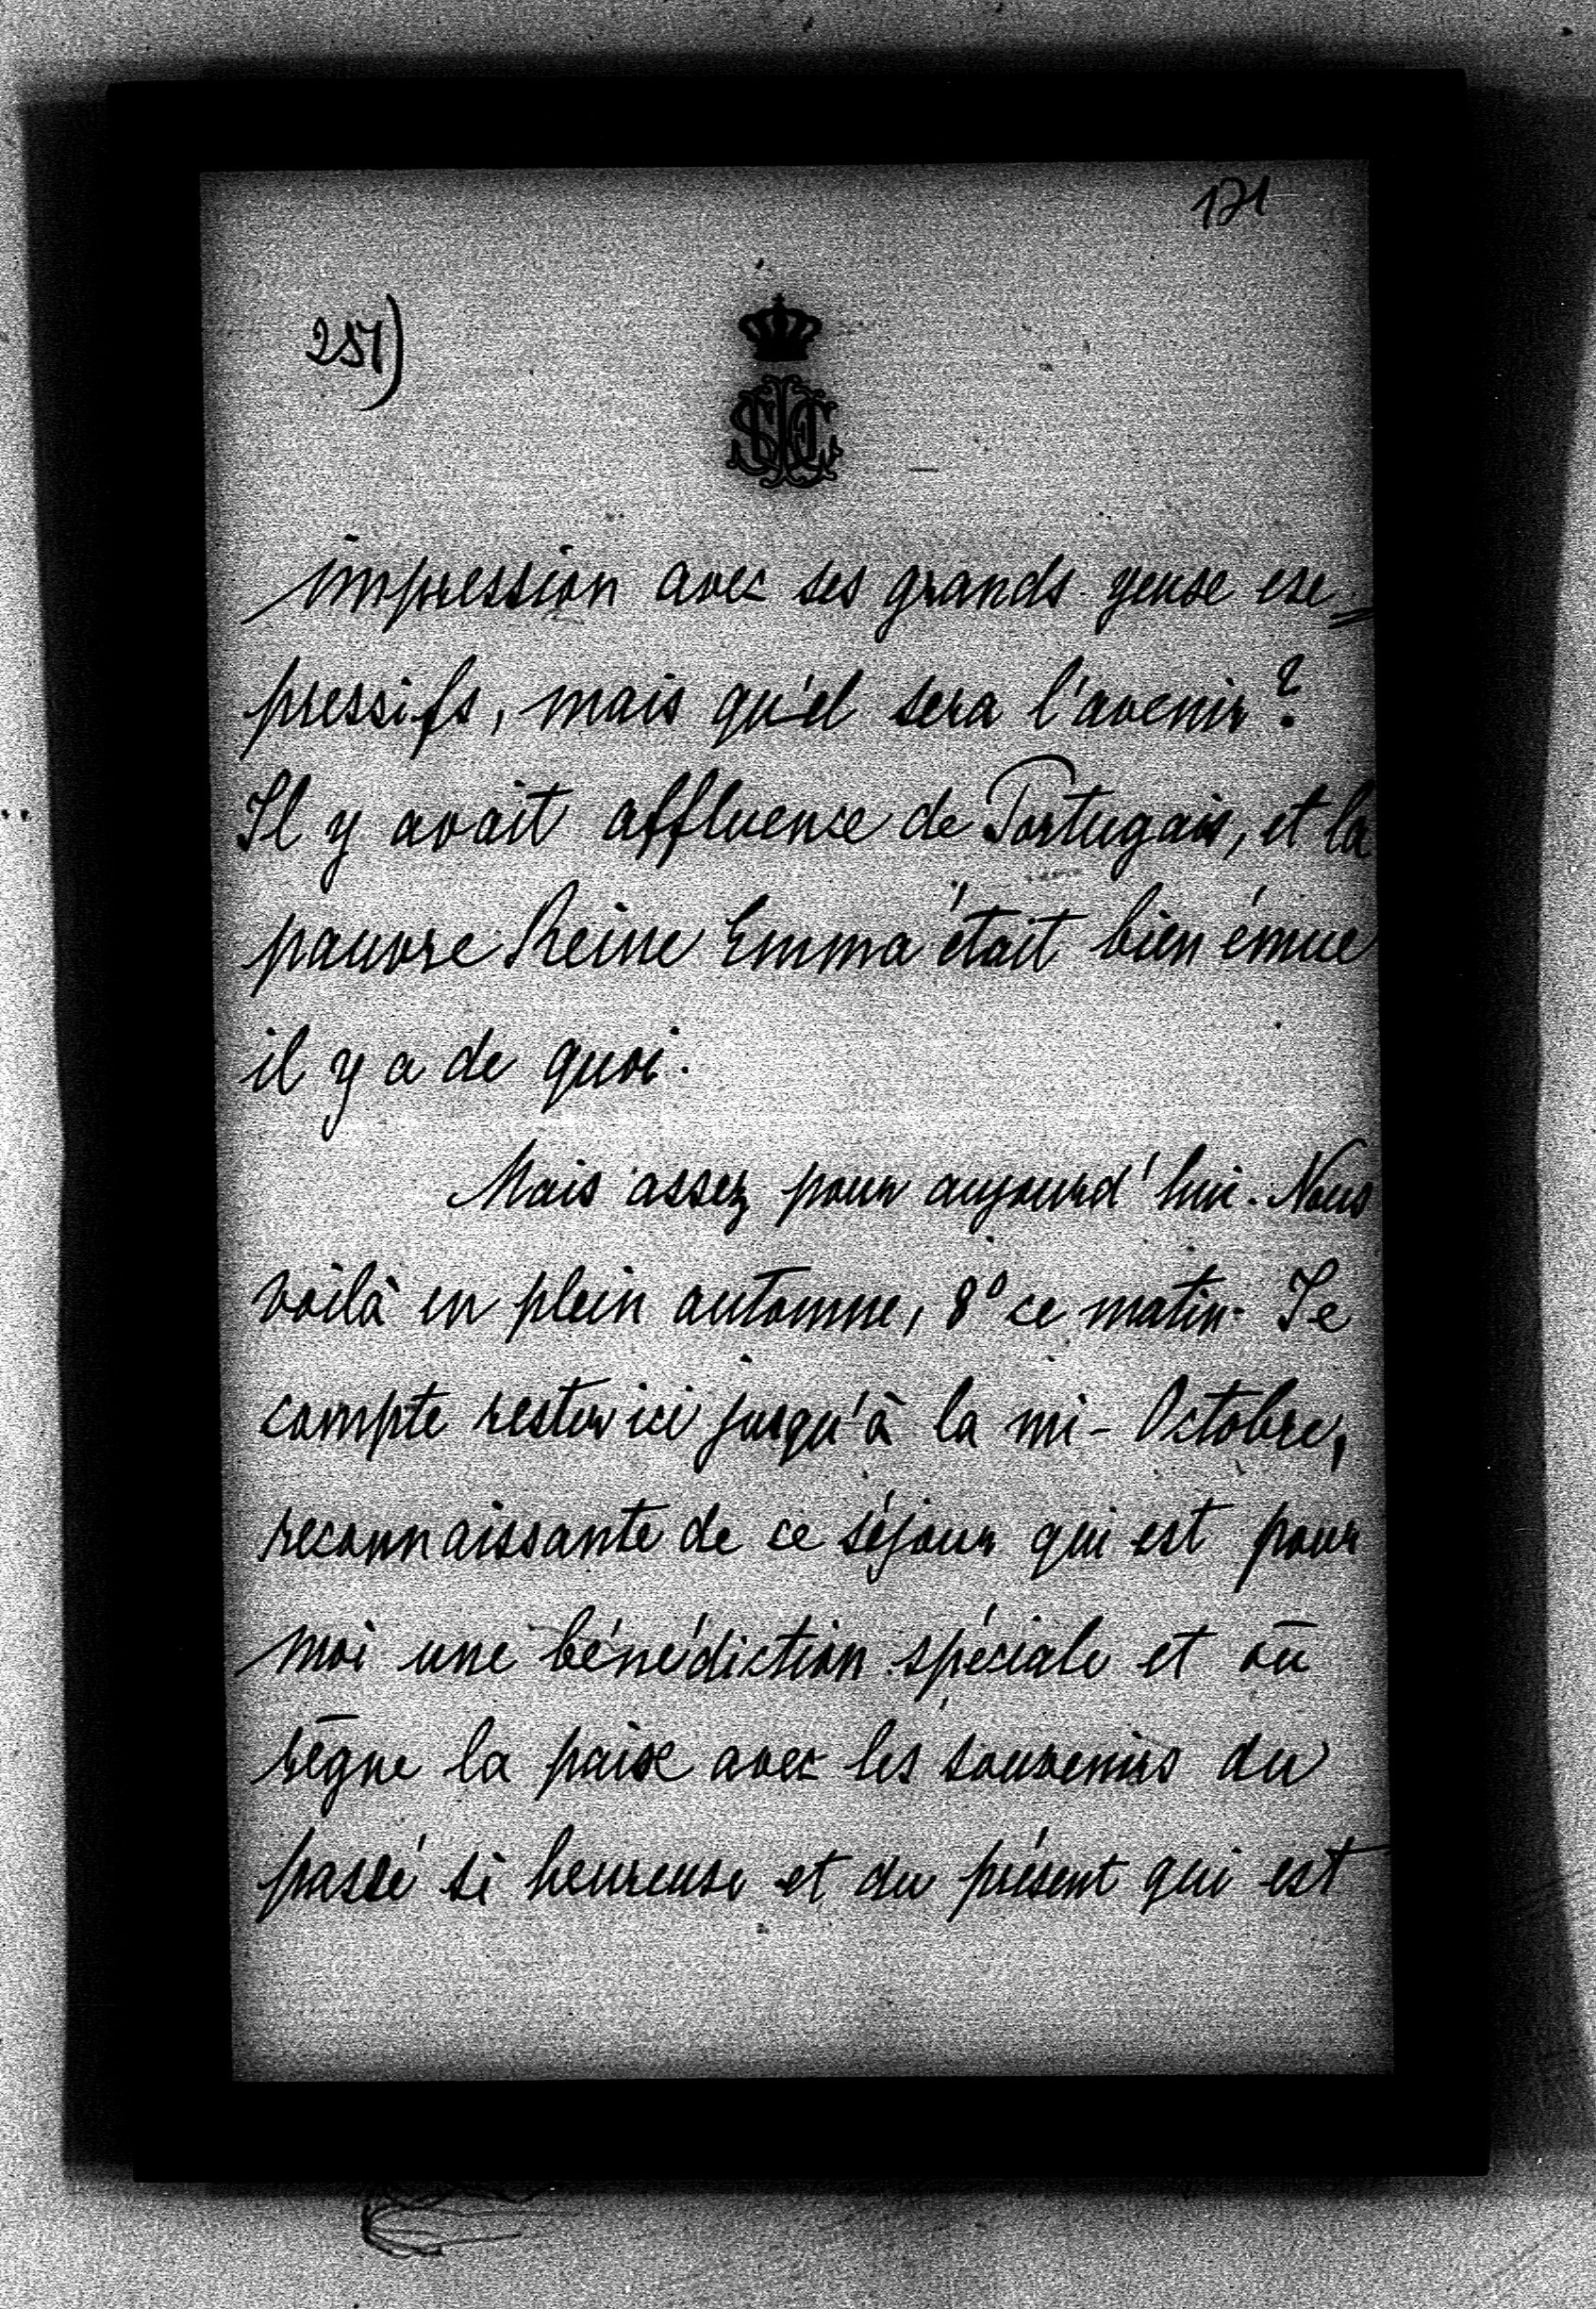 171
257)
impression avec ses grands yeux ex=
pressifs, mais qu'el sera l'avenir?
Il y avait affluence de Portugais, et la
pauvre Reine Emma était bien émue
il y a de quoi.
Mais assez pour aujourd'hui. Nous
voilà en plein automne, 8° ce matin. Je
compte rester ici jusqu'à la mi-Octobre,
reconnaissante de ce séjour qui est pour
moi une bénédiction spéciale et où
règne la paix avec les souvenirs du
passé si heureux et du présent qui est